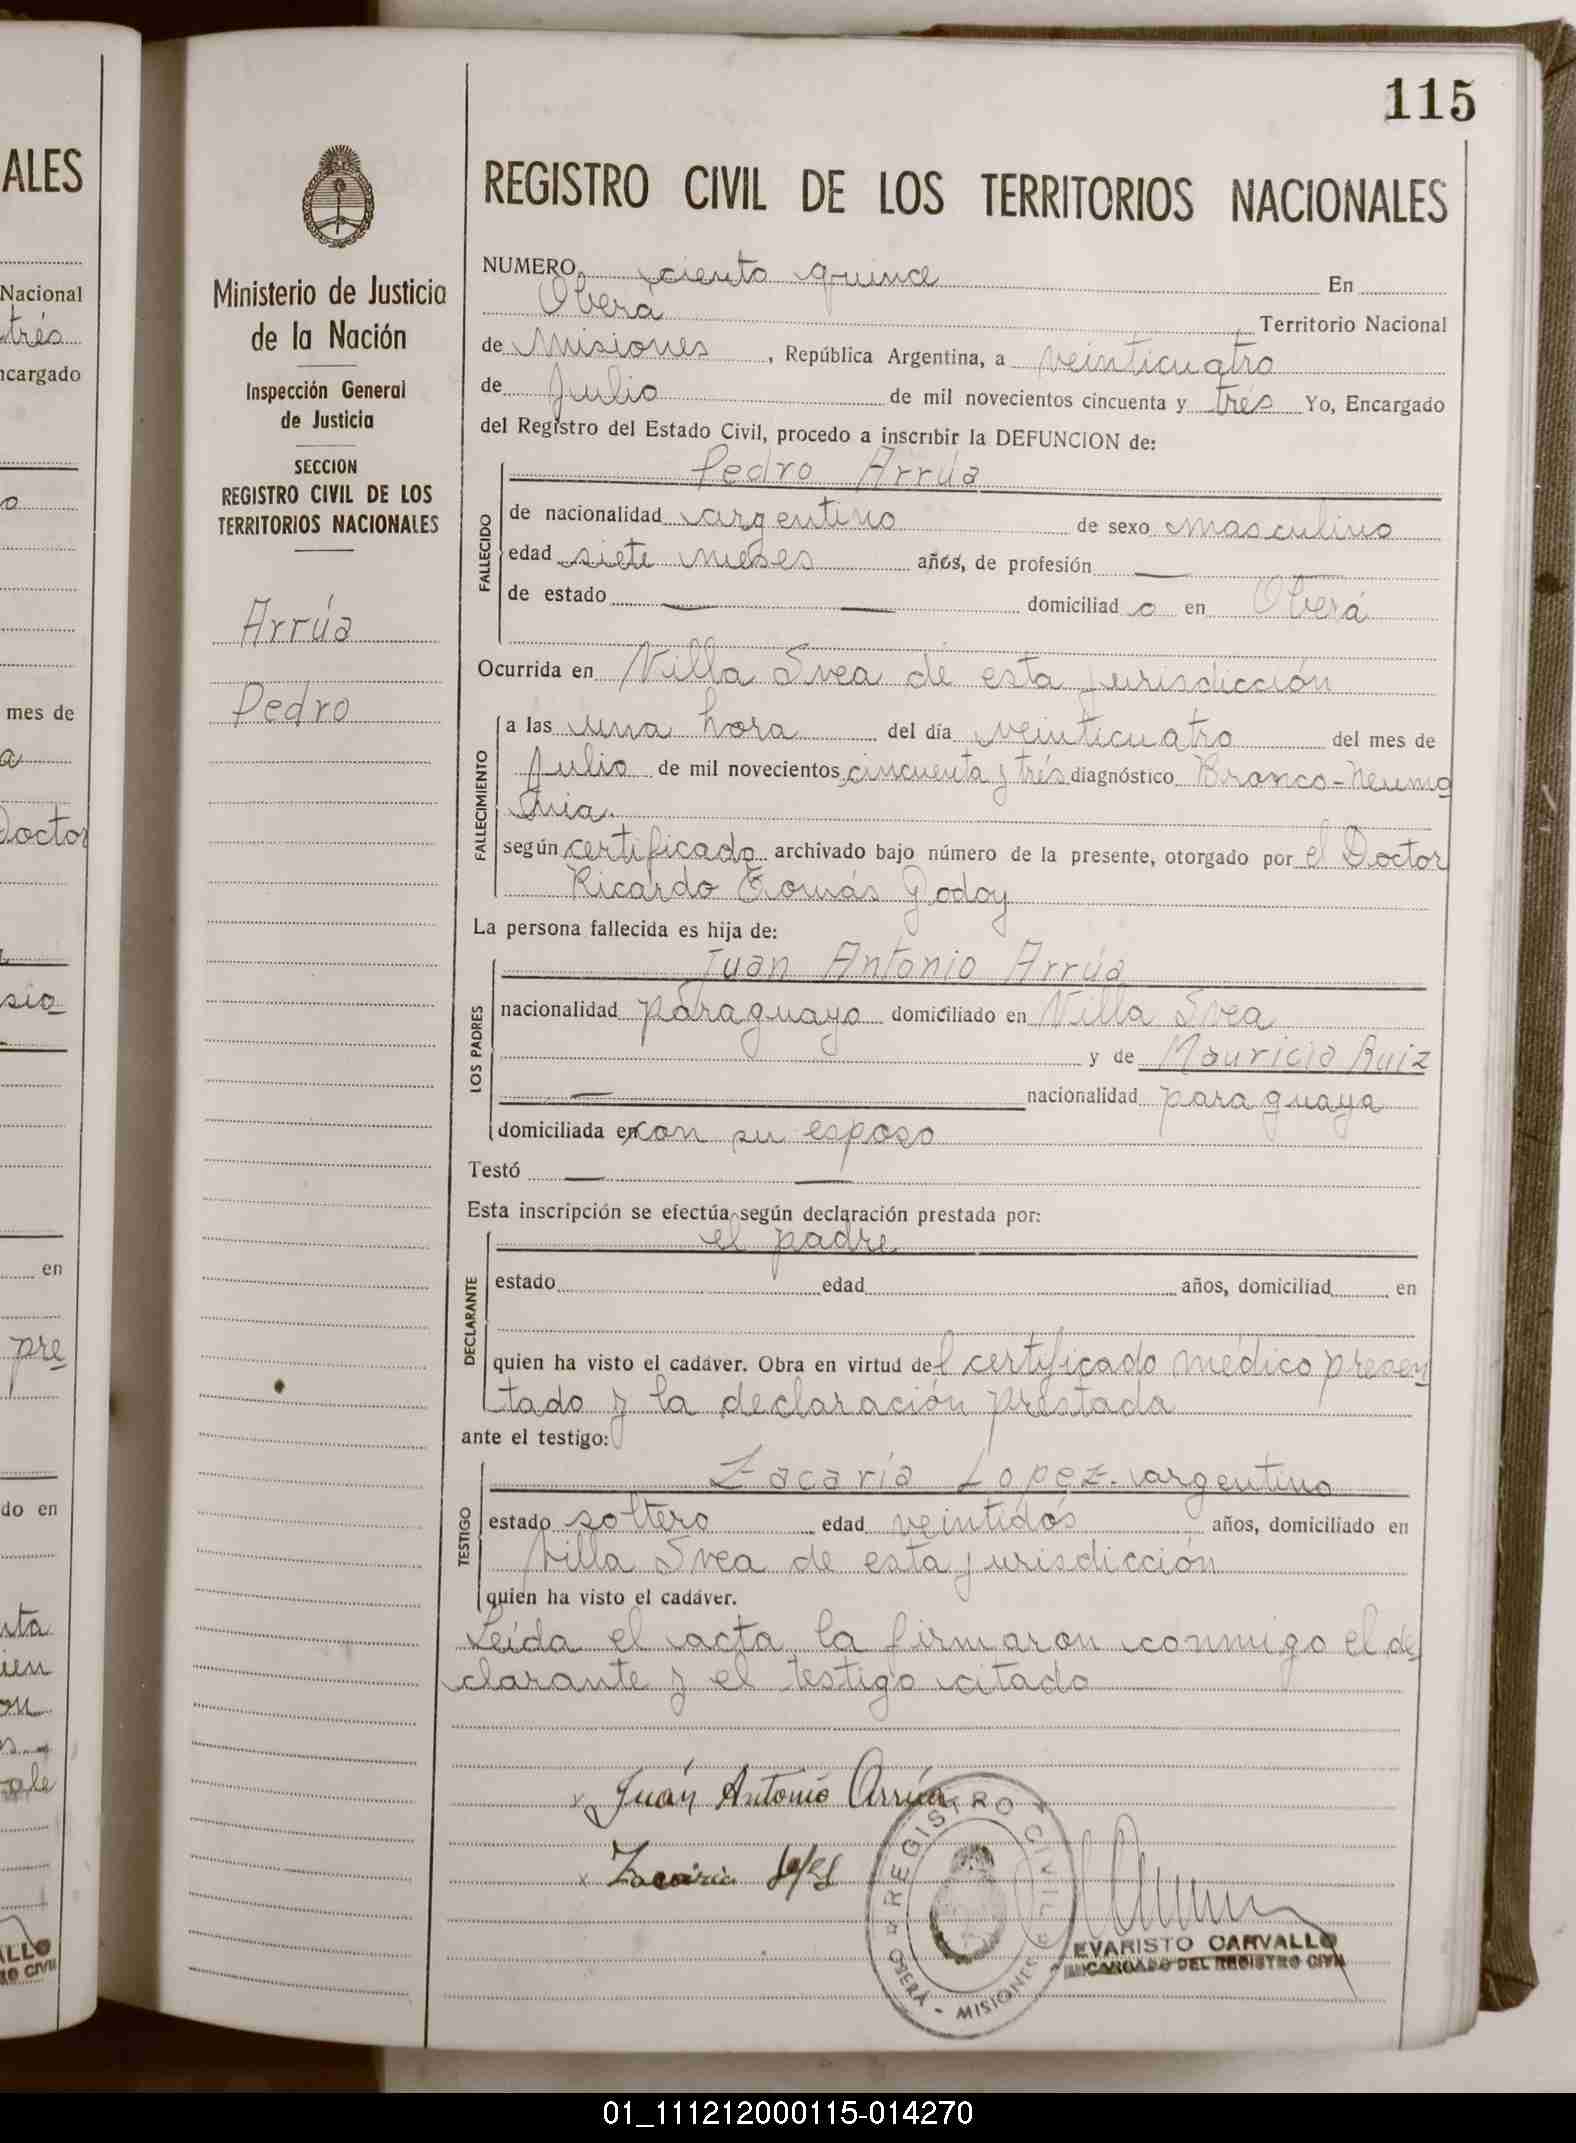 115
ALES
Nacional
trés
ncargado
mes de
a
Doctor
sia
en
pre
do en
nta
ien
on
ALLO
RO CIVIL
Ministerio de Justicia
de la Nación
Inspección General
de Justicia
SECCION
REGISTRO CIVIL DE LOS
TERRITORIOS NACIONALES
Arrúa
Pedro
REGISTRO CIVIL DE LOS TERRITORIOS NACIONALES
NUMERO ciento quince En
Oberá Territorio Nacional
de Misiones, República Argentina, a veinticuatro
de Julio de mil novecientos cincuenta y trés Yo, Encargado
del Registro del Estado Civil, procedo a inscribir la DEFUNCION de:
Pedro Arrúa
FALLECIDO
de nacionalidad argentino de sexo masculino
edad siete meses años, de profesión —
de estado — — domiciliad o en Oberá
Ocurrida en Villa Svea de esta jurisdicción
FALLECIMIENTO
a las una hora del día veinticuatro del mes de
Julio de mil novecientos cincuenta y trés diagnóstico Bronco-neumo
nia.
según certificado archivado bajo número de la presente, otorgado por el Doctor
Ricardo Tomás Godoy
La persona fallecida es hija de:
LOS PADRES
Juan Antonio Arrúa
nacionalidad paraguayo domiciliado en Villa Svea
y de Mauricia Ruiz
— nacionalidad paraguaya
domiciliada en con su esposo
Testó — —
Esta inscripción se efectúa según declaración prestada por:
DECLARANTE
el padre
estado edad años, domiciliad en
quien ha visto el cadáver. Obra en virtud del certificado médico presen
tado y la declaración prestada
ante el testigo:
TESTIGO
Zacaría Lopez. argentino
estado soltero edad veintidós años, domiciliado en
Villa Svea de esta jurisdicción
quien ha visto el cadáver.
Leída el acta la firmaron conmigo el de
clarante y el testigo citado
x Juán Antonio Arrúa
x Zacaria
REGISTRO CIVIL
OBERÁ - MISIONES
EVARISTO CARVALLO
ENCARGADO DEL REGISTRO CIVIL
01_111212000115-014270